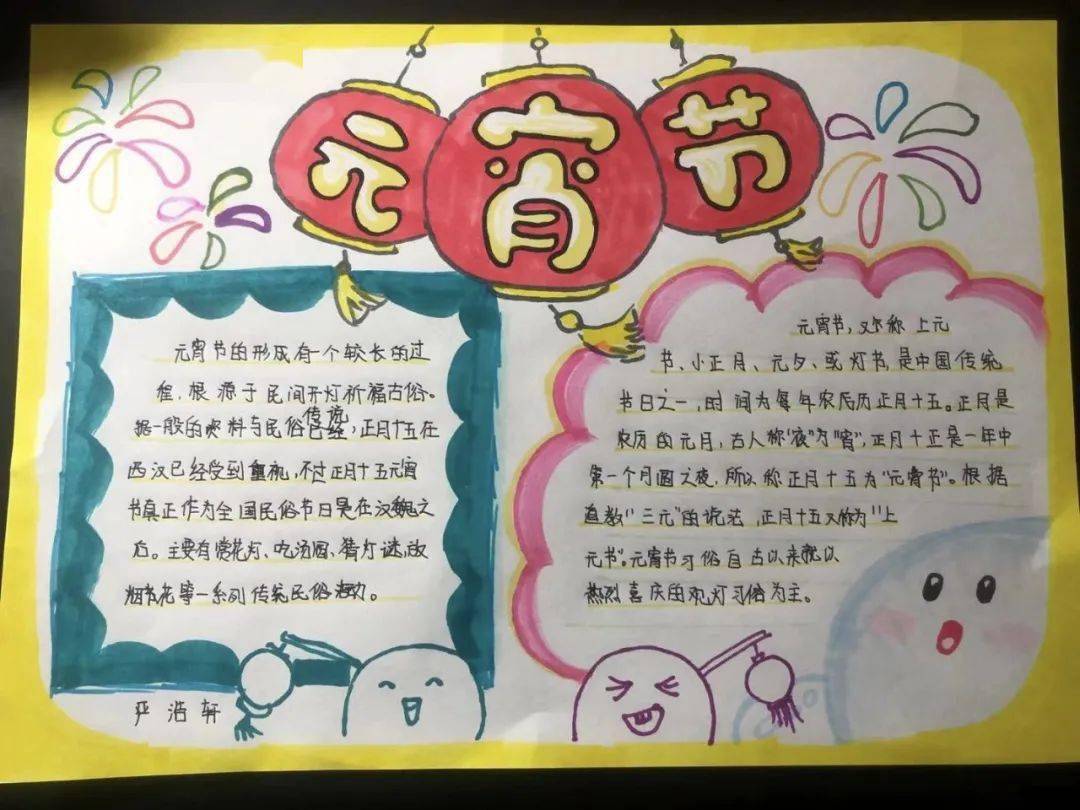 元宵节
元宵节的形成有一个较长的过
程,根源于民间开灯祈福古俗。
据一般的资料与民俗传说已经,正月十五在
西汉已经受到重视,不过正月十五元宵
节真正作为全国民俗节日是在汉魏之
后。主要有赏花灯、吃汤圆、猜灯谜、放
烟花等一系列传统民俗活动。
严浩轩
元宵节,又称上元
节、小正月、元夕、或灯节,是中国传统
节日之一,时间为每年农历正月十五。正月是
农历的元月,古人称"夜"为"宵",正月十五是一年中
第一个月圆之夜,所以称正月十五为"元宵节"。根据
道教"三元"的说法,正月十五又称为"上
元节"。元宵节习俗自古以来就以
热烈喜庆的观灯习俗为主。